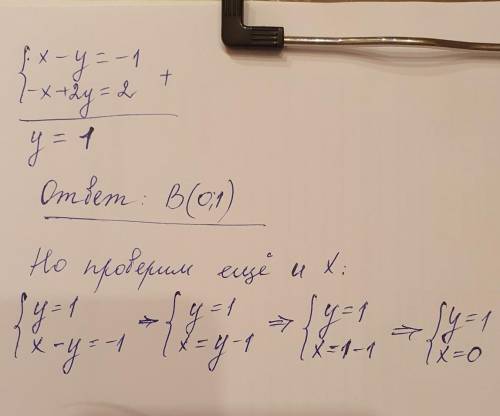 { x - y = -1
-x + 2y = 2 +
y = 1
Ответ: B(0;1)
Но проверим ещё и x:
{ y=1 => { y=1 => { y=1 => { y=1
x-y=-1 x=y-1 x=1-1 x=0